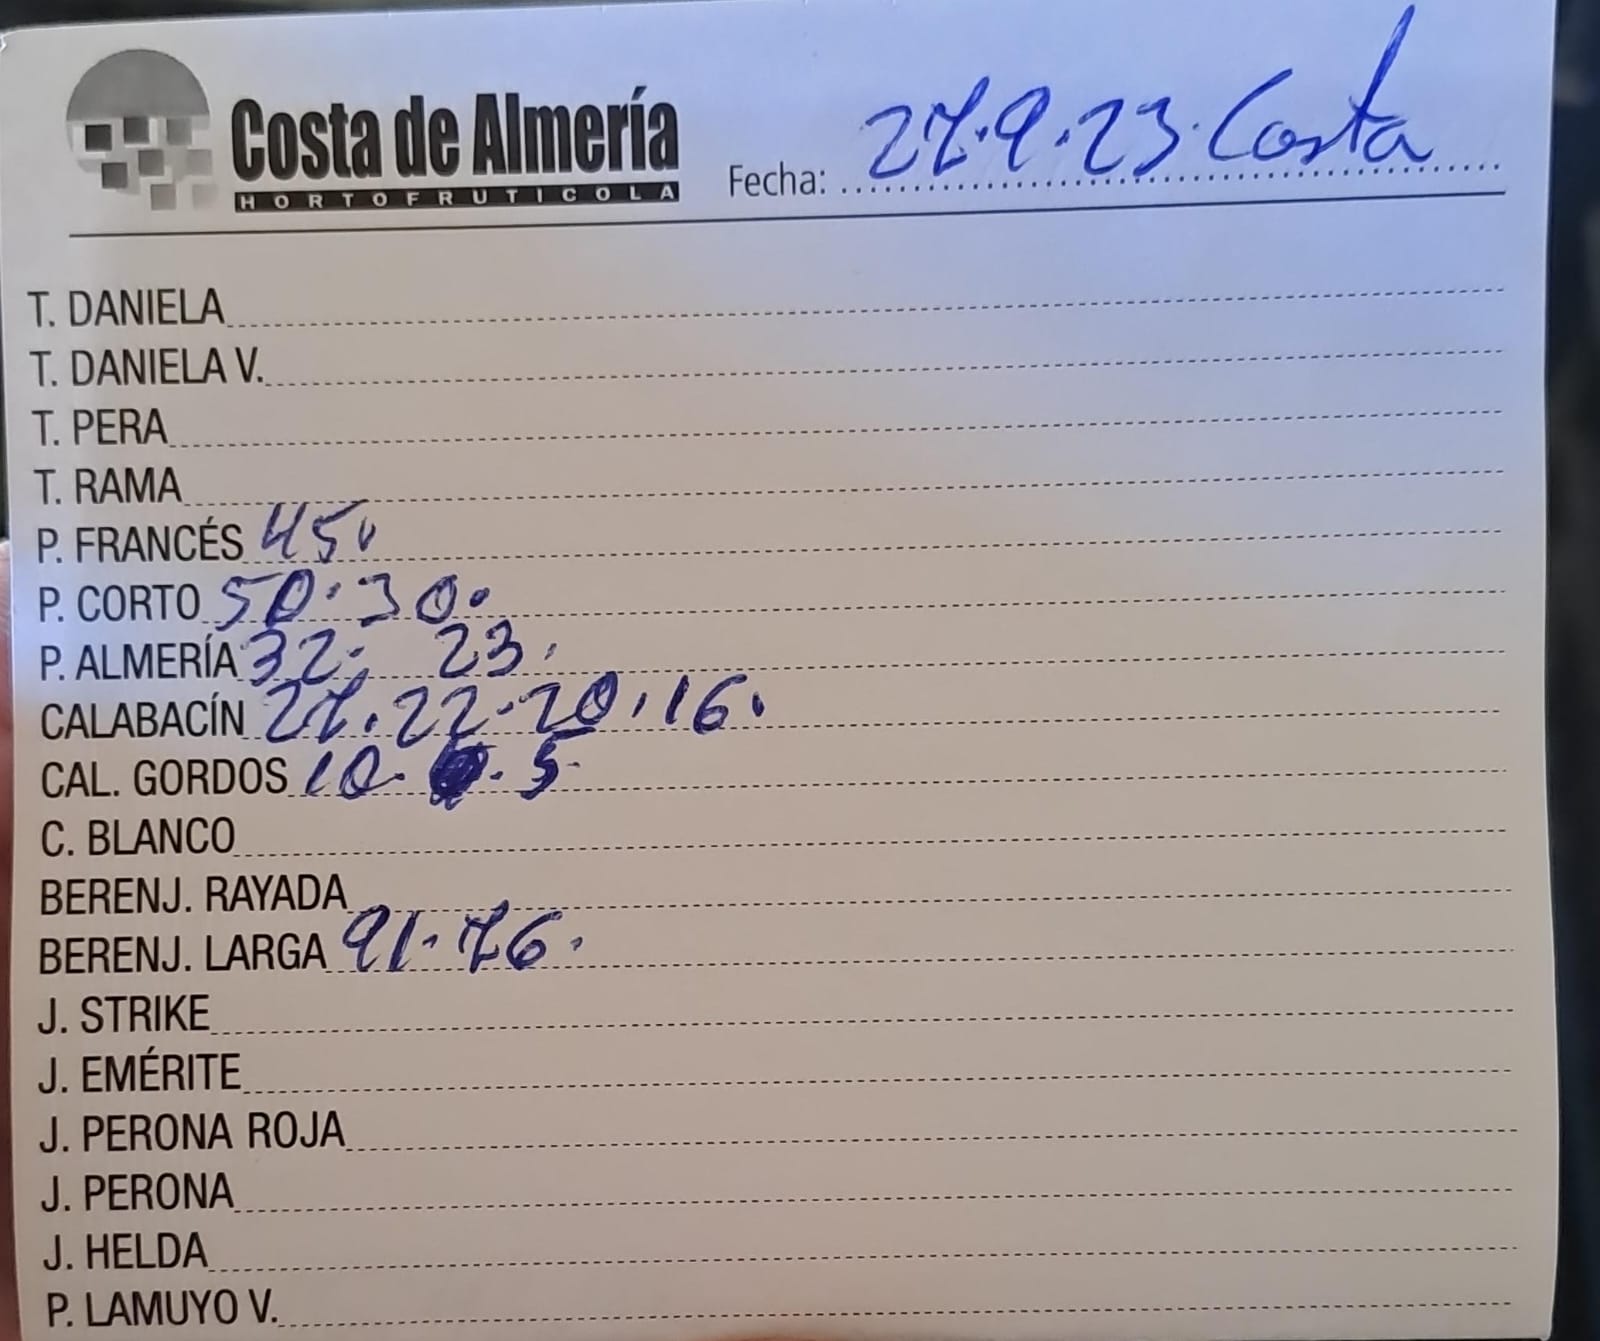 Costa de Almería
HORTOFRUTICOLA
Fecha: 27.9.23. Costa
T. DANIELA
T. DANIELA V.
T. PERA
T. RAMA
P. FRANCÉS 45.
P. CORTO 50.30.
P. ALMERÍA 32. 23.
CALABACÍN 27.22.20.16.
CAL. GORDOS 10. . 5.
C. BLANCO
BERENJ. RAYADA
BERENJ. LARGA 91.76.
J. STRIKE
J. EMÉRITE
J. PERONA ROJA
J. PERONA
J. HELDA
P. LAMUYO V.